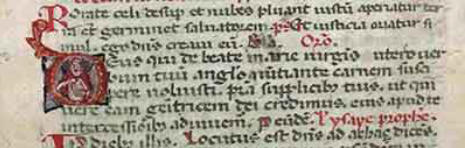 Rorate celi desup et nubes pluant iustū aperiatur ter
ra et germinet saluatorem. ps. Et iusticia oriatur si
mul. ego dn̄s creaui eū. Oro.
Deus qui de beate marie uirgīs utero uer
bum tuū anglo nūtiante carnem susci
pere uoluisti. pr̄a supplicib; tuis. ut qui
uere eam geitricem dei credimus. eius apud te
intercessiōib; adiuuem̄. p eūdē. Ysaye prophe.
In dieb; illis. Locutus est dn̄s ad achaz dicēs.